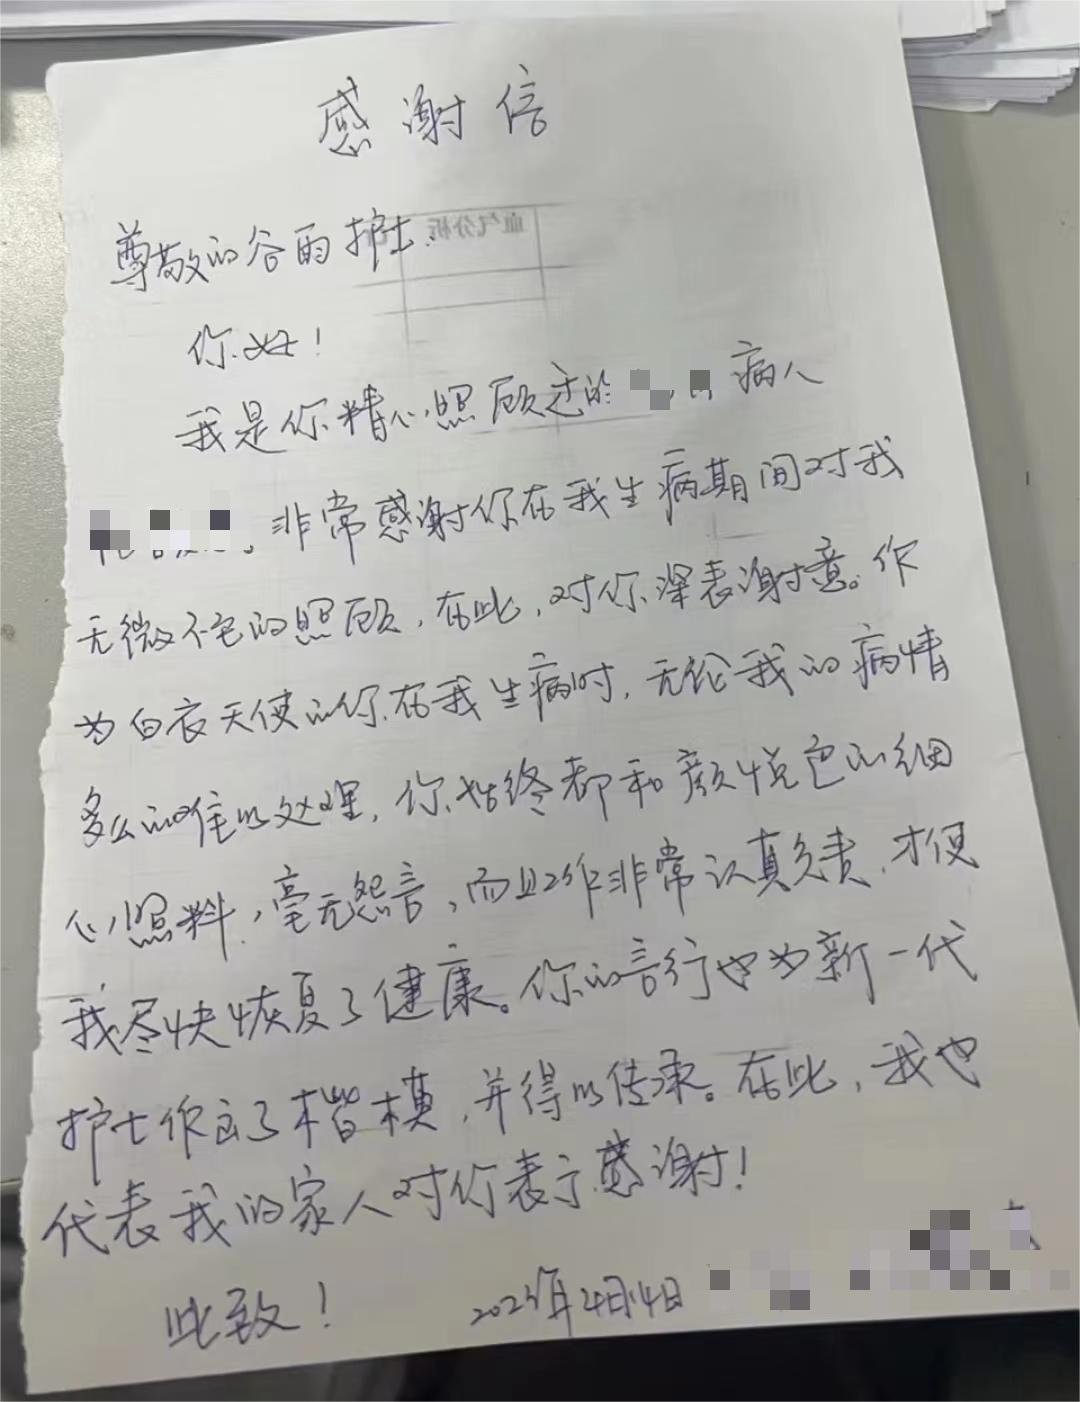 感谢信
血气分析
尊敬的谷雨护士.
你好！
我是你精心照顾过的 病人
非常感谢你在我生病期间对我
无微不至的照顾，在此，对你深表谢意。作
为白衣天使的你在我生病时，无论我的病情
多么的难以处理，你始终都和颜悦色的细
心照料，毫无怨言，而且工作非常认真负责，才使
我尽快恢复了健康。你的言行也为新一代
护士作出了楷模，并得以传承。在此，我也
代表我的家人对你表示感谢！
此致！
2023年4月4日